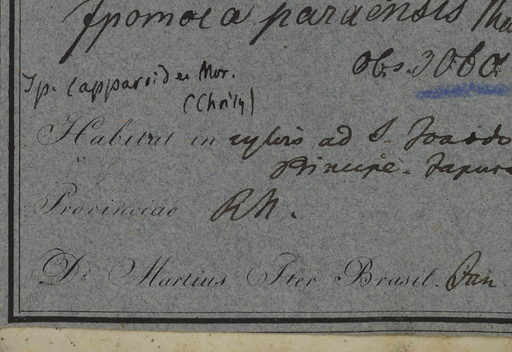 Ipomoea paraensis Ma
Obs. 3060.
Ip. capparoides Mor.
(Choisy)
Habitat in sylvis ad S. Joao do
Principe. Japura
Provinciae RN.
Dr Martius Iter Brasil. Jan